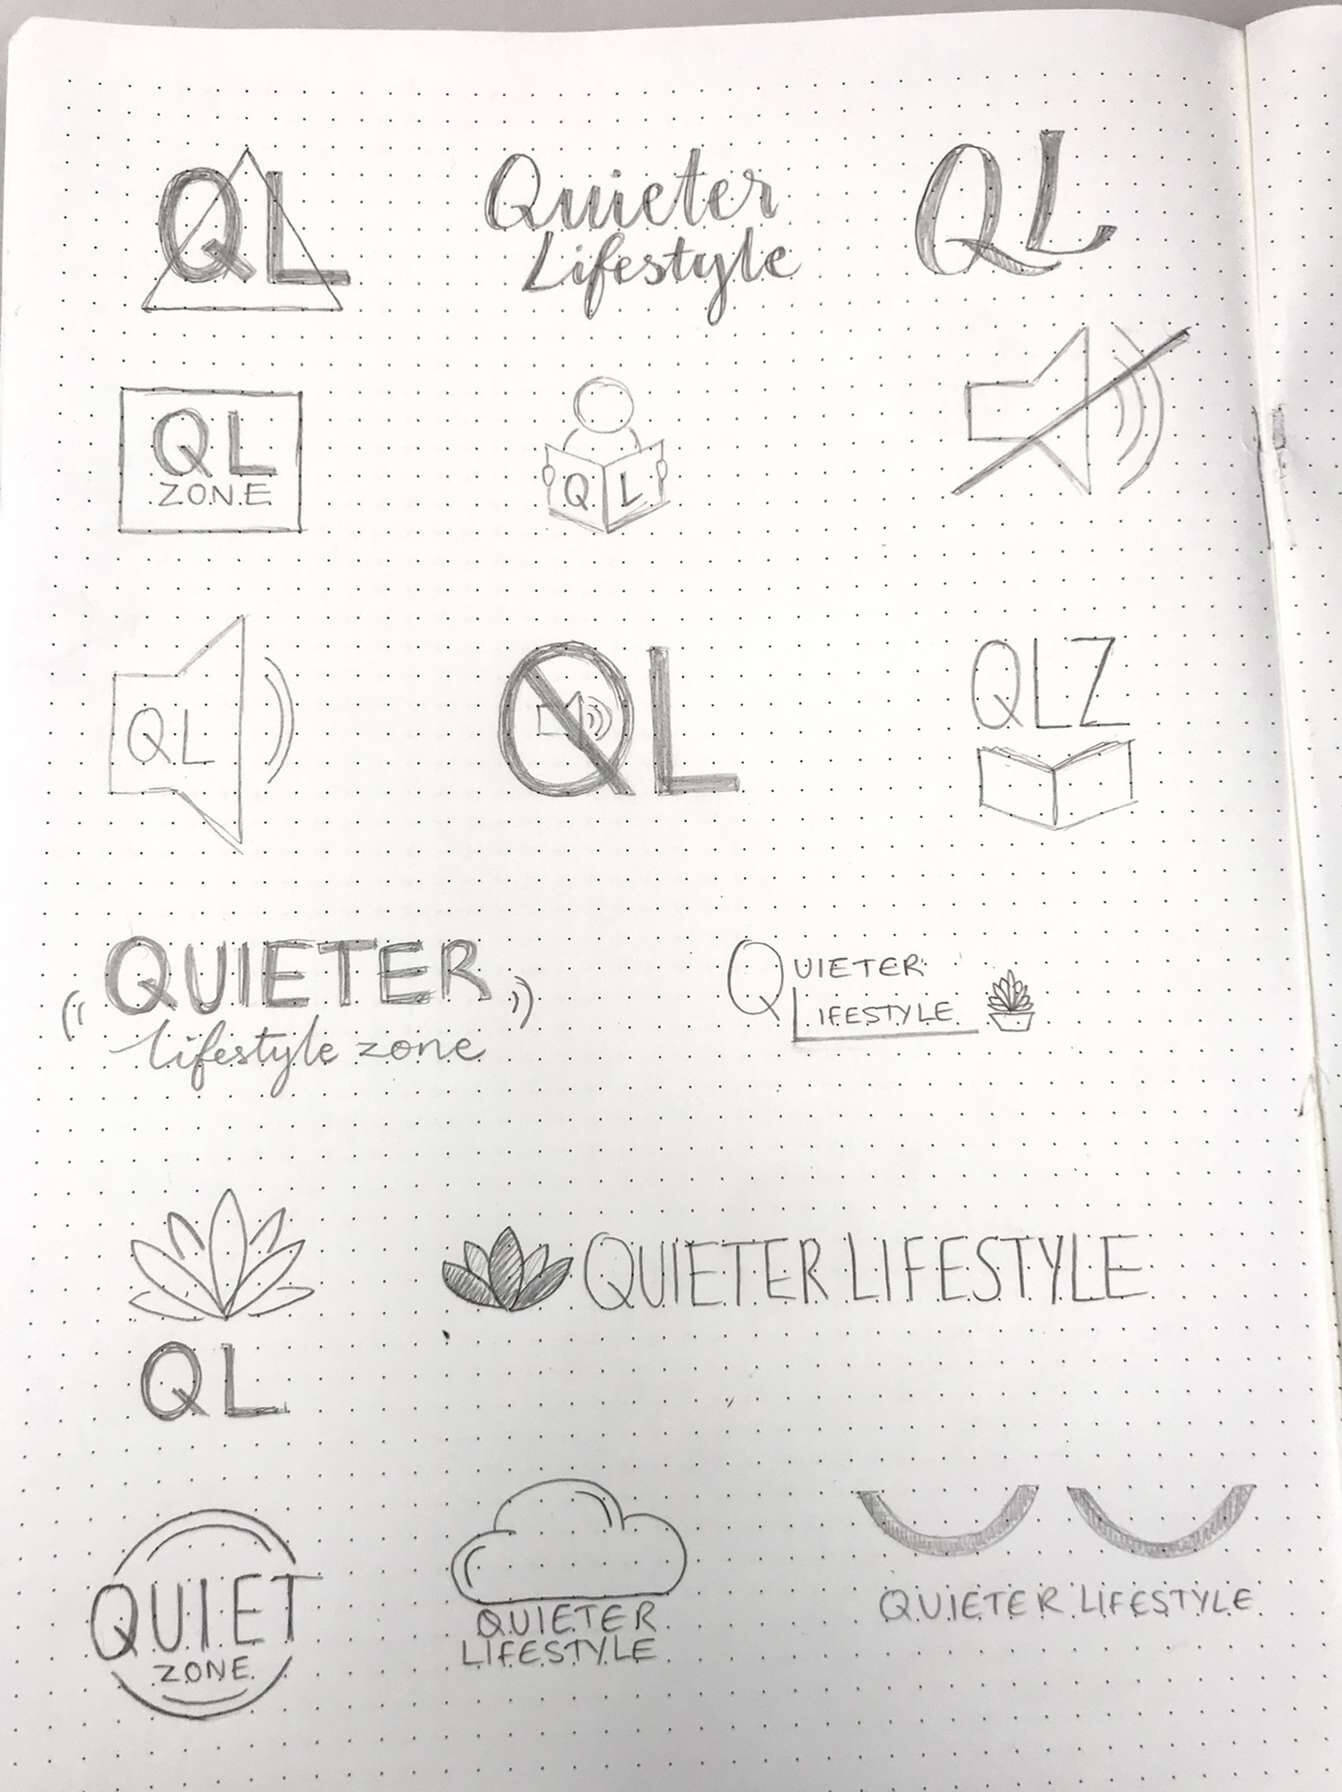 QL
Quieter
Lifestyle
QL
QL
ZONE
Q L
QL
QL
QLZ
QUIETER
lifestyle zone
QUIETER
LIFESTYLE
QL
QUIETER LIFESTYLE
QUIET
ZONE
QUIETER
LIFESTYLE
QUIETER LIFESTYLE